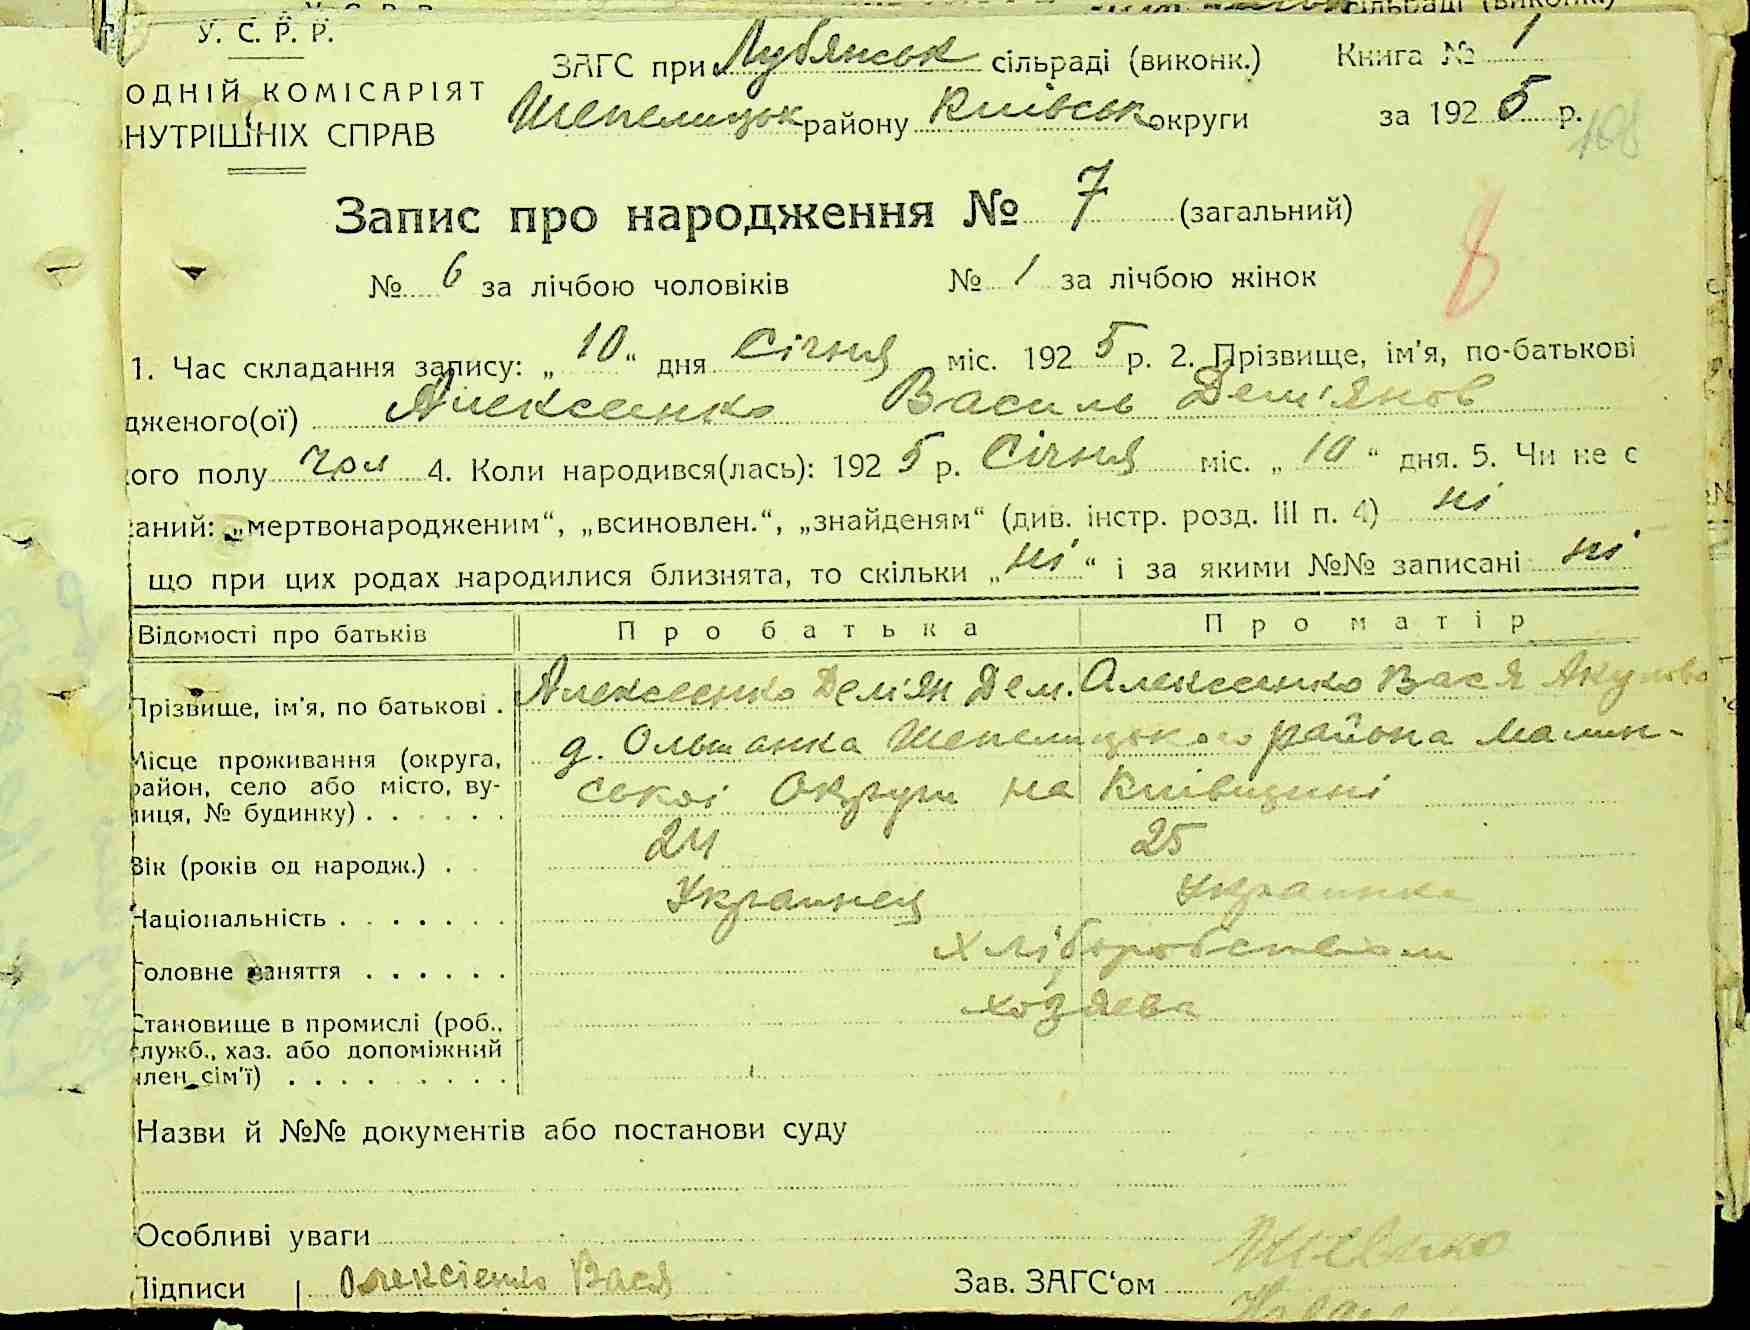 У. С. Р. Р.
ЗАГС при Лубянськ сільраді (виконк.) Книга № 1
ОДНІЙ КОМІСАРІЯТ
Шепелицьк району Київськ округи за 1925 р.
НУТРІШНІХ СПРАВ
108
Запис про народження № 7 (загальний)
8
№ 6 за лічбою чоловіків № 1 за лічбою жінок
1. Час складання запису: „10“ дня Січня міс. 1925 р. 2. Прізвище, ім'я, по-батькові
дженого(ої) Алексеенко Василь Дем'янов
ого полу чол 4. Коли народився(лась): 1925 р. Січня міс. „10“ дня. 5. Чи не є
аний: „мертвонародженим“, „всиновлен.“, „знайденям“ (див. інстр. розд. III п. 4) ні
що при цих родах народилися близнята, то скільки „ні“ і за якими №№ записані ні
Відомості про батьків Про батька Про матір
Прізвище, ім'я, по батькові . Алексеенко Демян Дем. Алексеенко Вася
Місце проживання (округа, д. Ольшанка Шепелицького района Малин-
район, село або місто, ву- ської Округи на Київщині
лиця, № будинку) . . . . . .
Вік (років од народж.) . 24 25
Національність . . . . . . . Украинец Украинка
Головне заняття . . . . . . Хліборобством
Становище в промислі (роб., хозяева
служб., хаз. або допоміжний
член сім'ї) . . . . . . . . .
Назви й №№ документів або постанови суду
Особливі уваги
Підписи Олексієнко Вася Зав. ЗАГС'ом